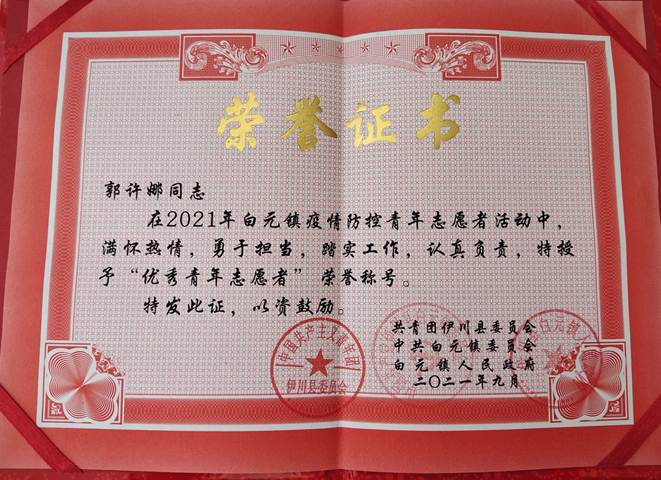 荣誉证书
郭许娜同志
在2021年白元镇疫情防控青年志愿者活动中，
满怀热情，勇于担当，踏实工作，认真负责，特授
予“优秀青年志愿者”荣誉称号。
特发此证，以资鼓励。
共青团伊川县委员会
中共白元镇委员会
白元镇人民政府
二〇二一年九月
中国共产主义青年团
伊川县委员会